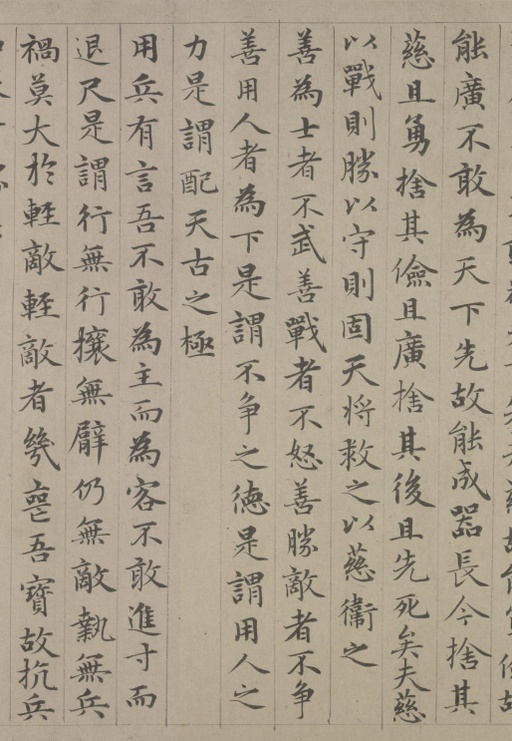 能廣不敢為天下先故能成器長今捨其
慈且勇捨其儉且廣捨其後且先死矣夫慈
以戰則勝以守則固天将救之以慈衞之
善為士者不武善戰者不怒善勝敵者不争
善用人者為下是謂不争之徳是謂用人之
力是謂配天古之極
用兵有言吾不敢為主而為客不敢進寸而
退尺是謂行無行攘無臂仍無敵執無兵
禍莫大於輕敵輕敵者幾喪吾寶故抗兵